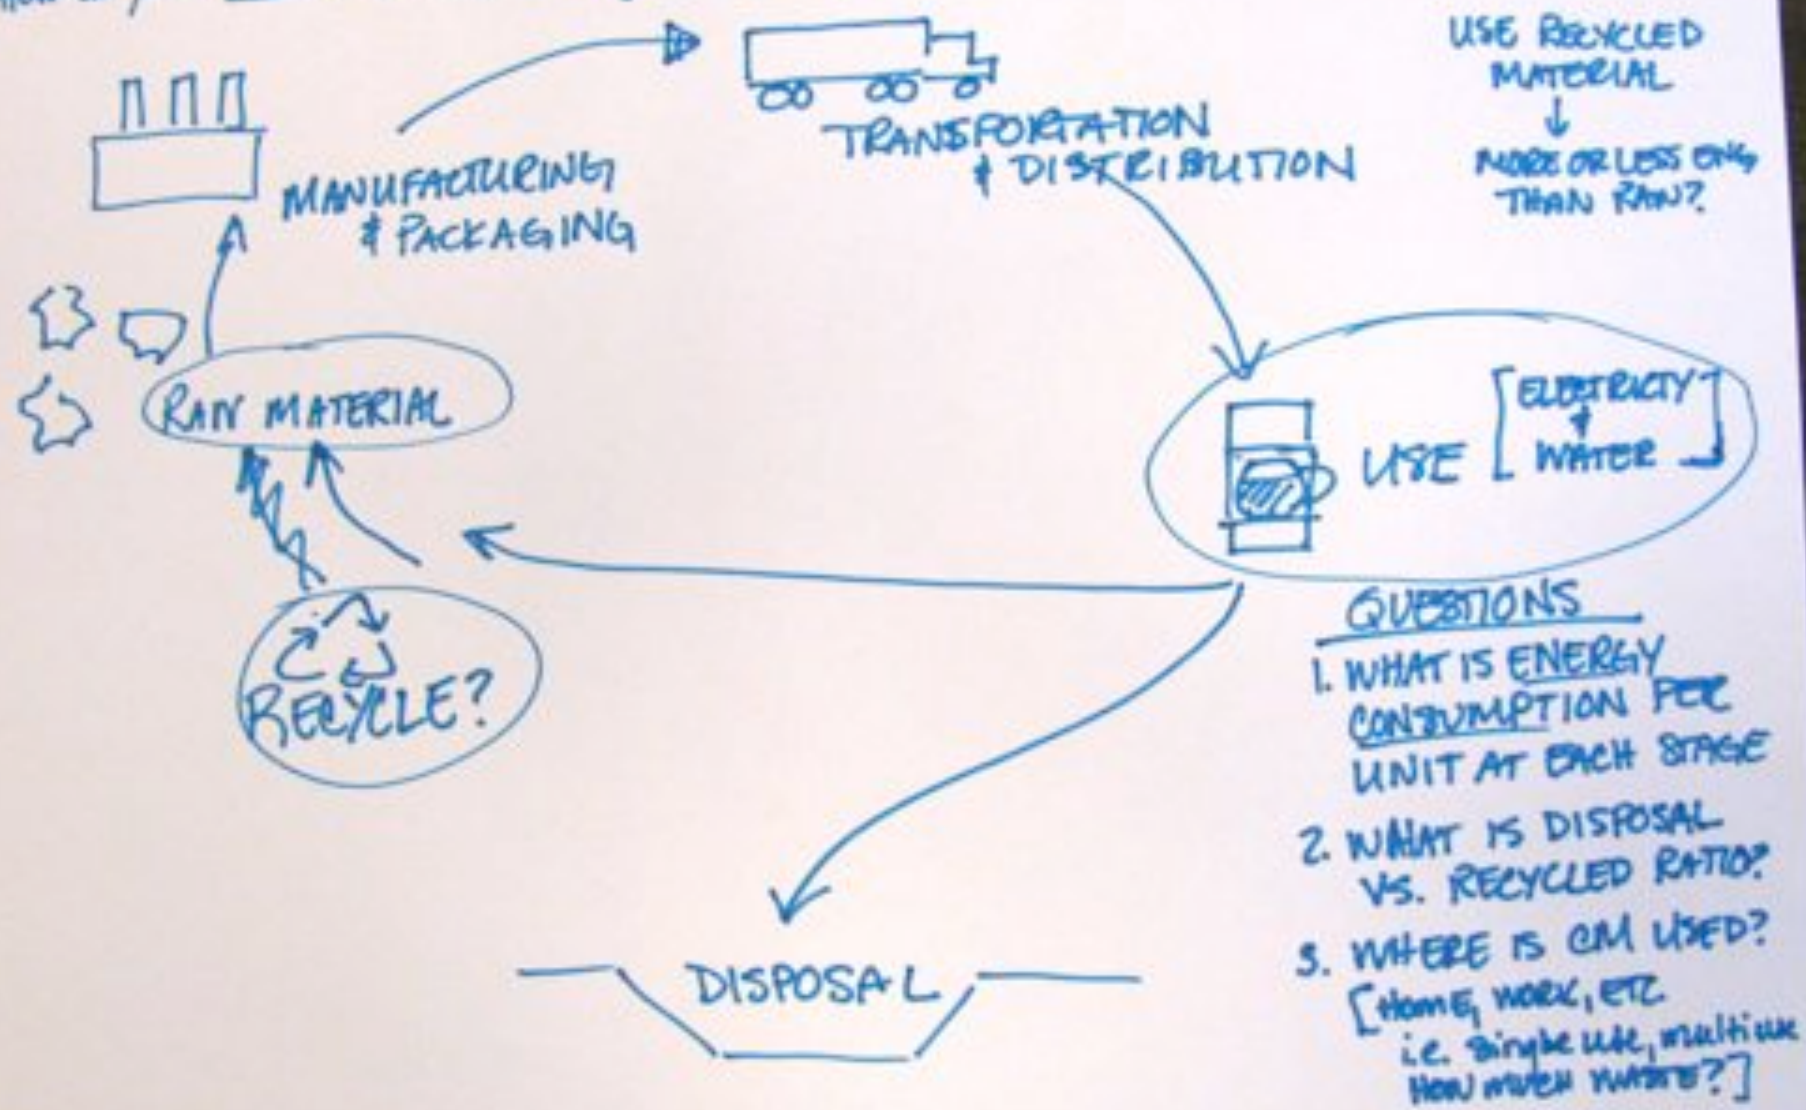 MANUFACTURING
& PACKAGING
TRANSPORTATION
& DISTRIBUTION
USE RECYCLED
MATERIAL
↓
MORE OR LESS ENG
THAN RAW?
RAW MATERIAL
USE [ELECTRICTY
&
WATER]
RECYCLE?
DISPOSAL
QUESTIONS
1. WHAT IS ENERGY
CONSUMPTION PER
UNIT AT EACH STAGE
2. WHAT IS DISPOSAL
VS. RECYCLED RATIO?
3. WHERE IS CM USED?
[HOME, WORK, ETC
i.e. single use, multi use
HOW MUCH WASTE?]